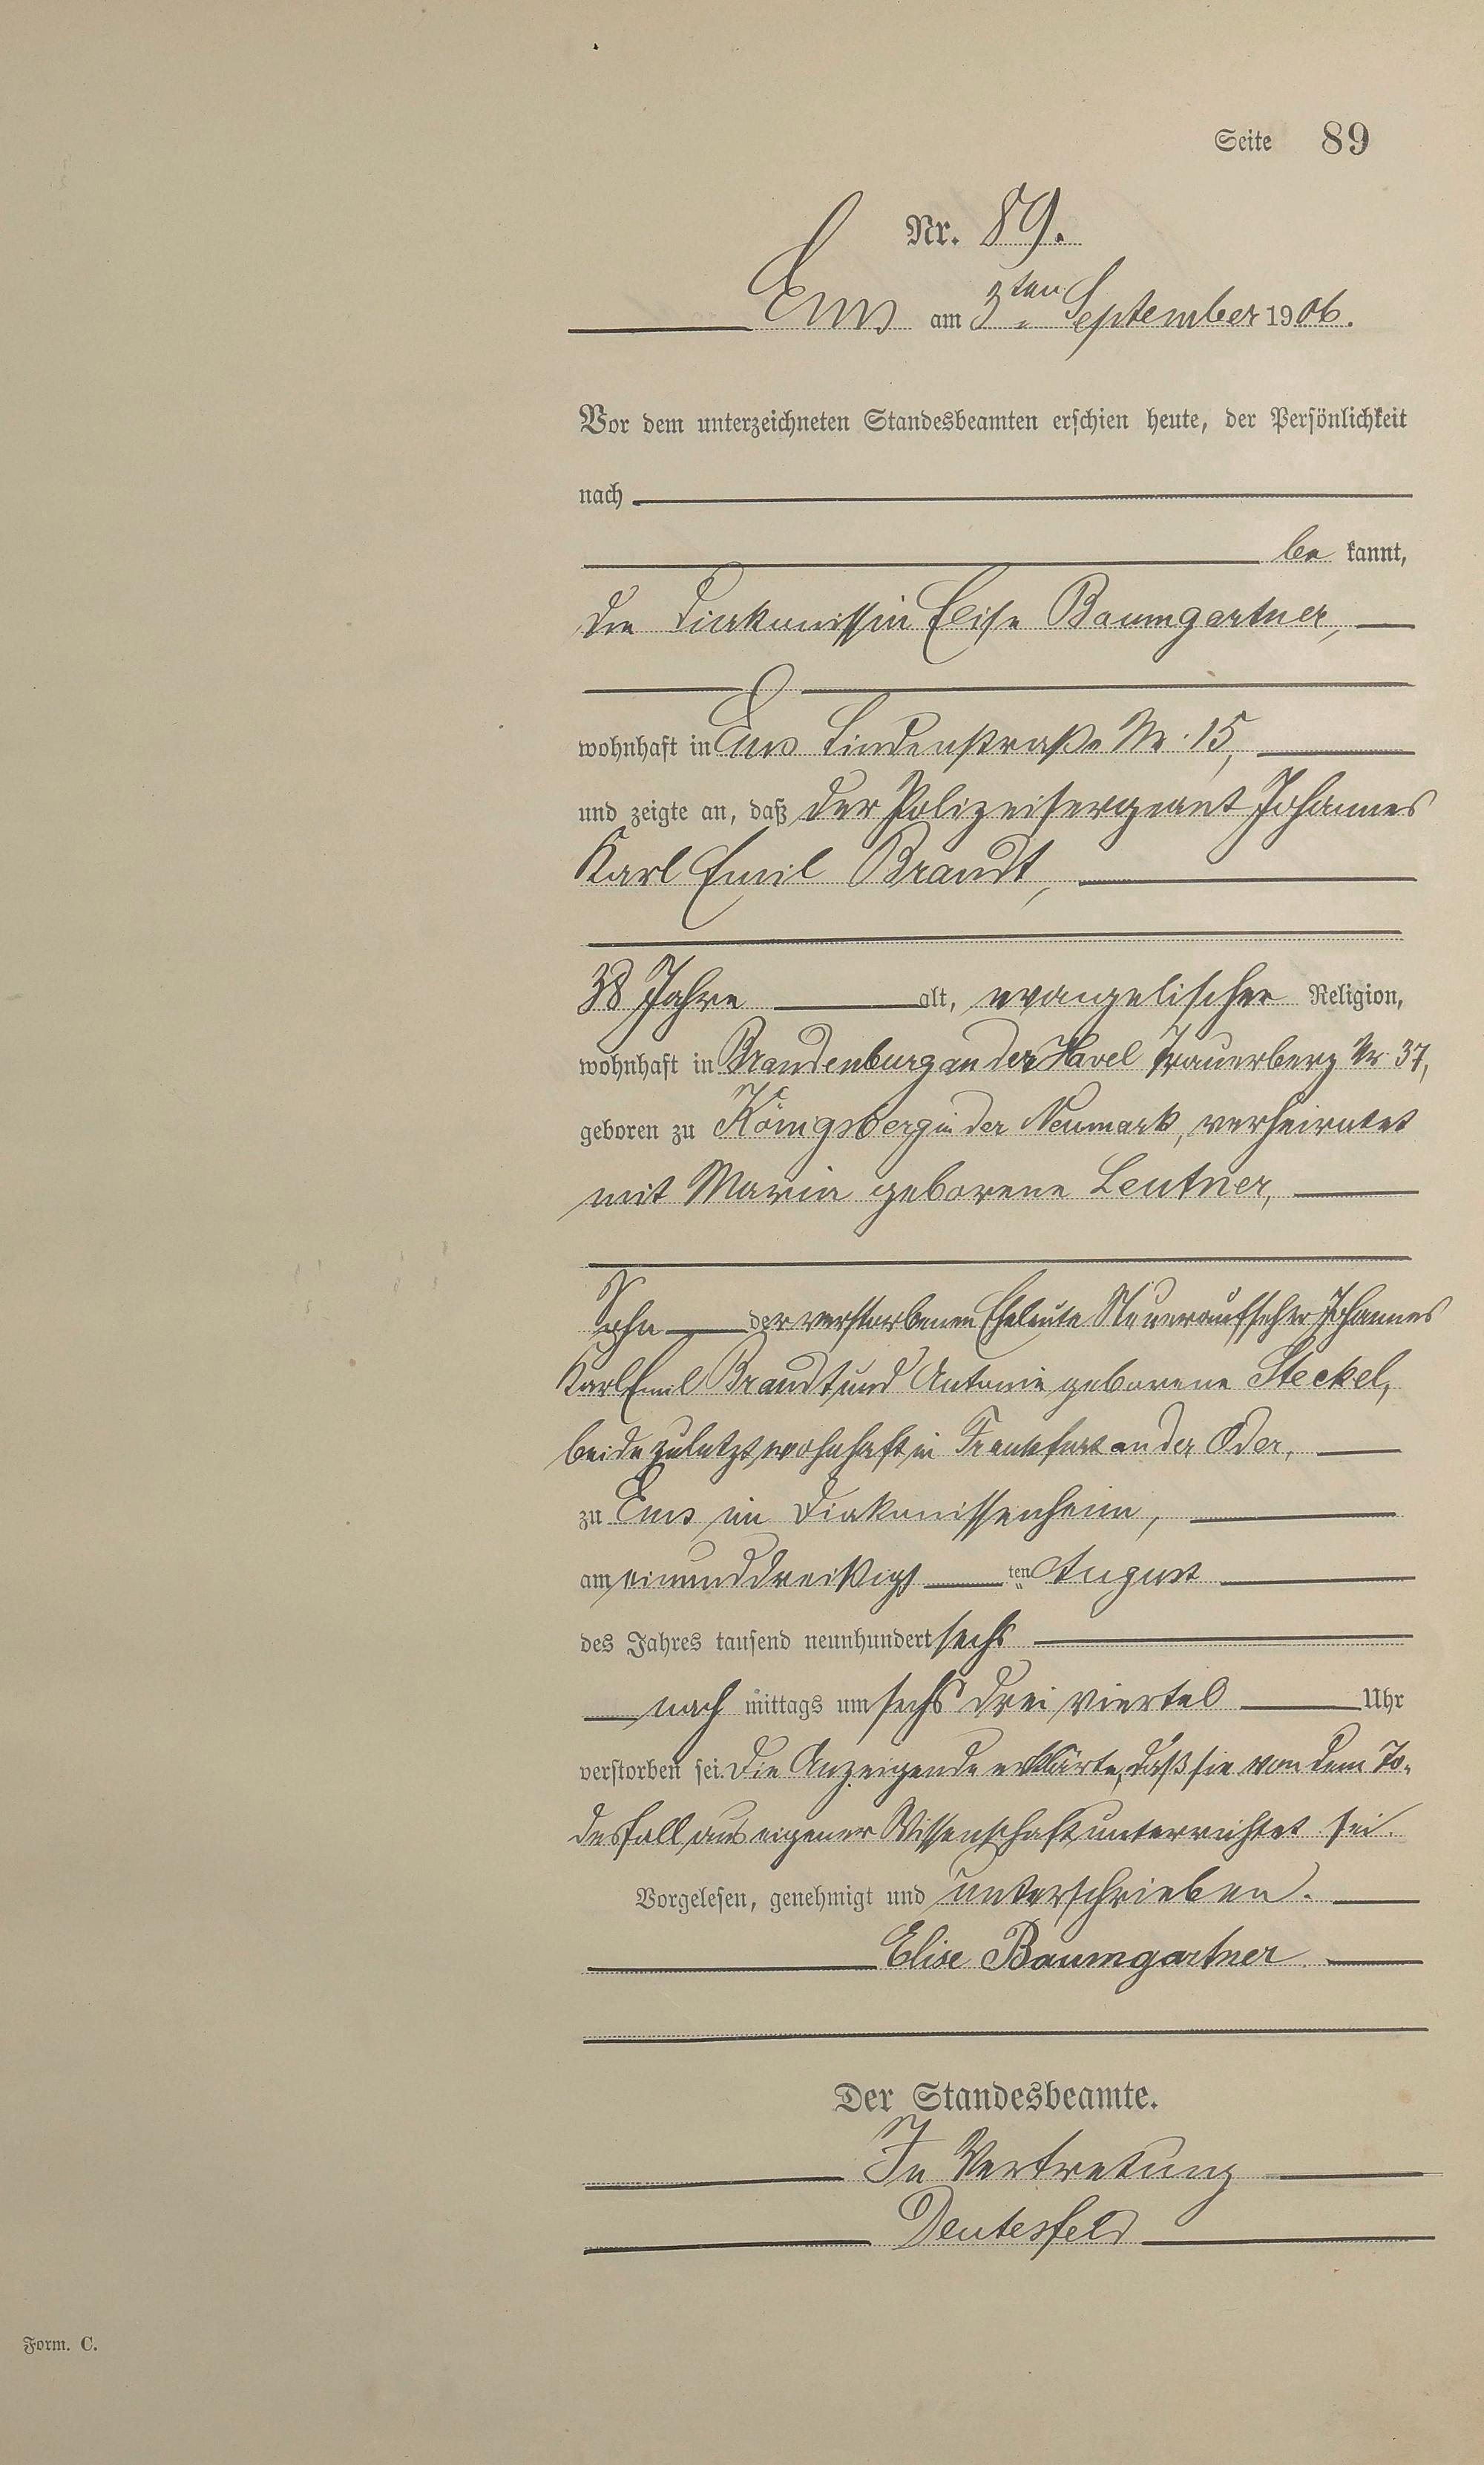 Seite 89
Nr. 89.
Ems am 3ten September 1906.
Vor dem unterzeichneten Standesbeamten erschien heute, der Persönlichkeit
nach
be kannt,
die Diakonissin Elise Baumgartner,
wohnhaft in Ems Lindenstraße Nr. 15,
und zeigte an, daß der Polizeisergeant Johannes
Karl Emil Brandt,
38 Jahre alt, evangelischer Religion,
wohnhaft in Brandenburg an der Havel Trauerberg Nr. 37,
geboren zu Königsberg in der Neumark, verheiratet
mit Maria geborene Leutner,
Sohn der verstorbenen Eheleute Steueraufseher Johannes
Karl Emil Brandt und Antonie geborene Steckel,
beide zuletzt wohnhaft in Frankfurt an der Oder,
zu Ems im Diakonissenheim,
am einunddreißigs ten August
des Jahres tausend neunhundert sechs
nach mittags um sechs drei viertel Uhr
verstorben sei. Die Anzeigende erklärte, daß sie von dem To-
desfall aus eigener Wissenschaft unterrichtet sei.
Vorgelesen, genehmigt und unterschrieben.
Elise Baumgartner
Der Standesbeamte.
In Vertretung
Deutesfeld
Form. C.